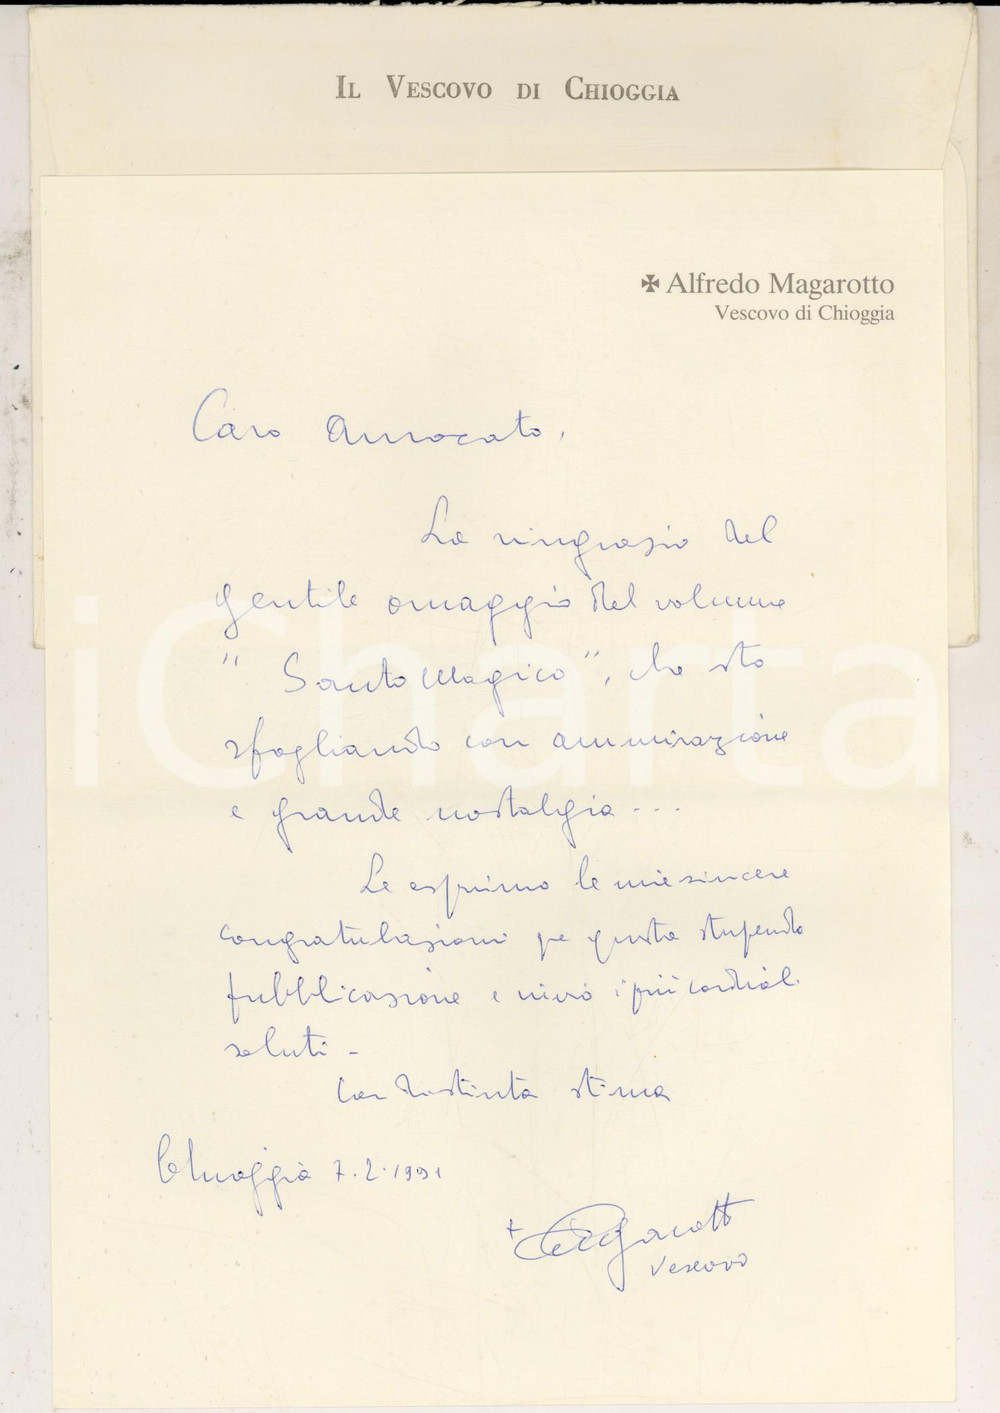 IL VESCOVO DI CHIOGGIA
✠ Alfredo Magarotto
Vescovo di Chioggia
Caro Avvocato,
La ringrazio del
gentile omaggio del volume
" Santo Magico", che sto
sfogliando con ammirazione
e grande nostalgia ...
Le esprimo le mie sincere
congratulazioni per questa stupenda
pubblicazione e invio i più cordiali
saluti -
Con distinta stima
Chioggia 7.2.1991
+ Magarotto
Vescovo
iCharta